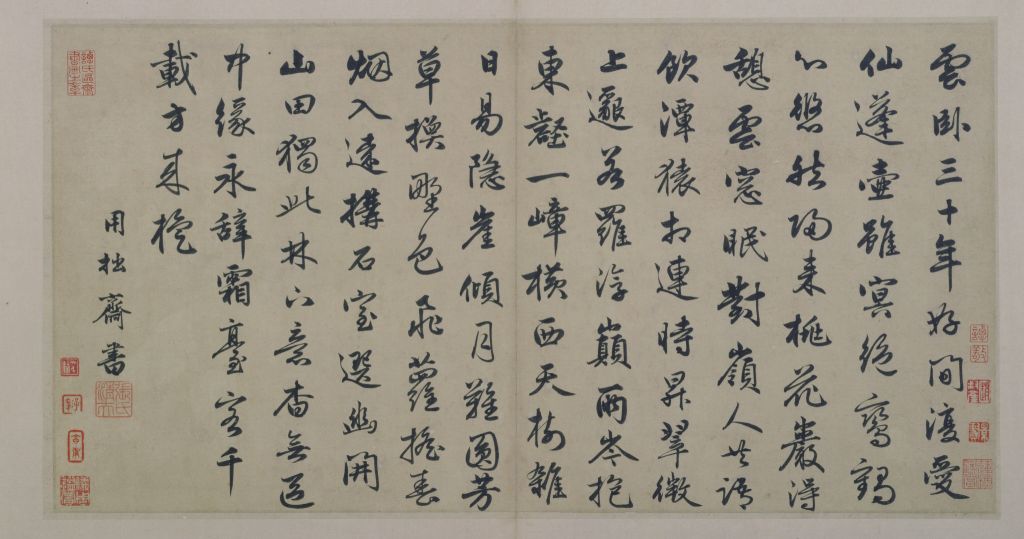 雲卧三十年好閒復愛
仙蓬壺雖冥絕鸞鶴
心悠然歸来桃花巖得
憩雲窓眠對嶺人共語
飲潭猿相連時昇翠微
上邈若羅浮巔兩岑抱
東壑一嶂横西天樹雜
日易隐崖傾月難圓芳
草換野色飛蘿摇春
烟入遠構石室選幽開
山田獨此林下意杳無區
中緣永辭霜臺客千
載方来旋
用拙齋書